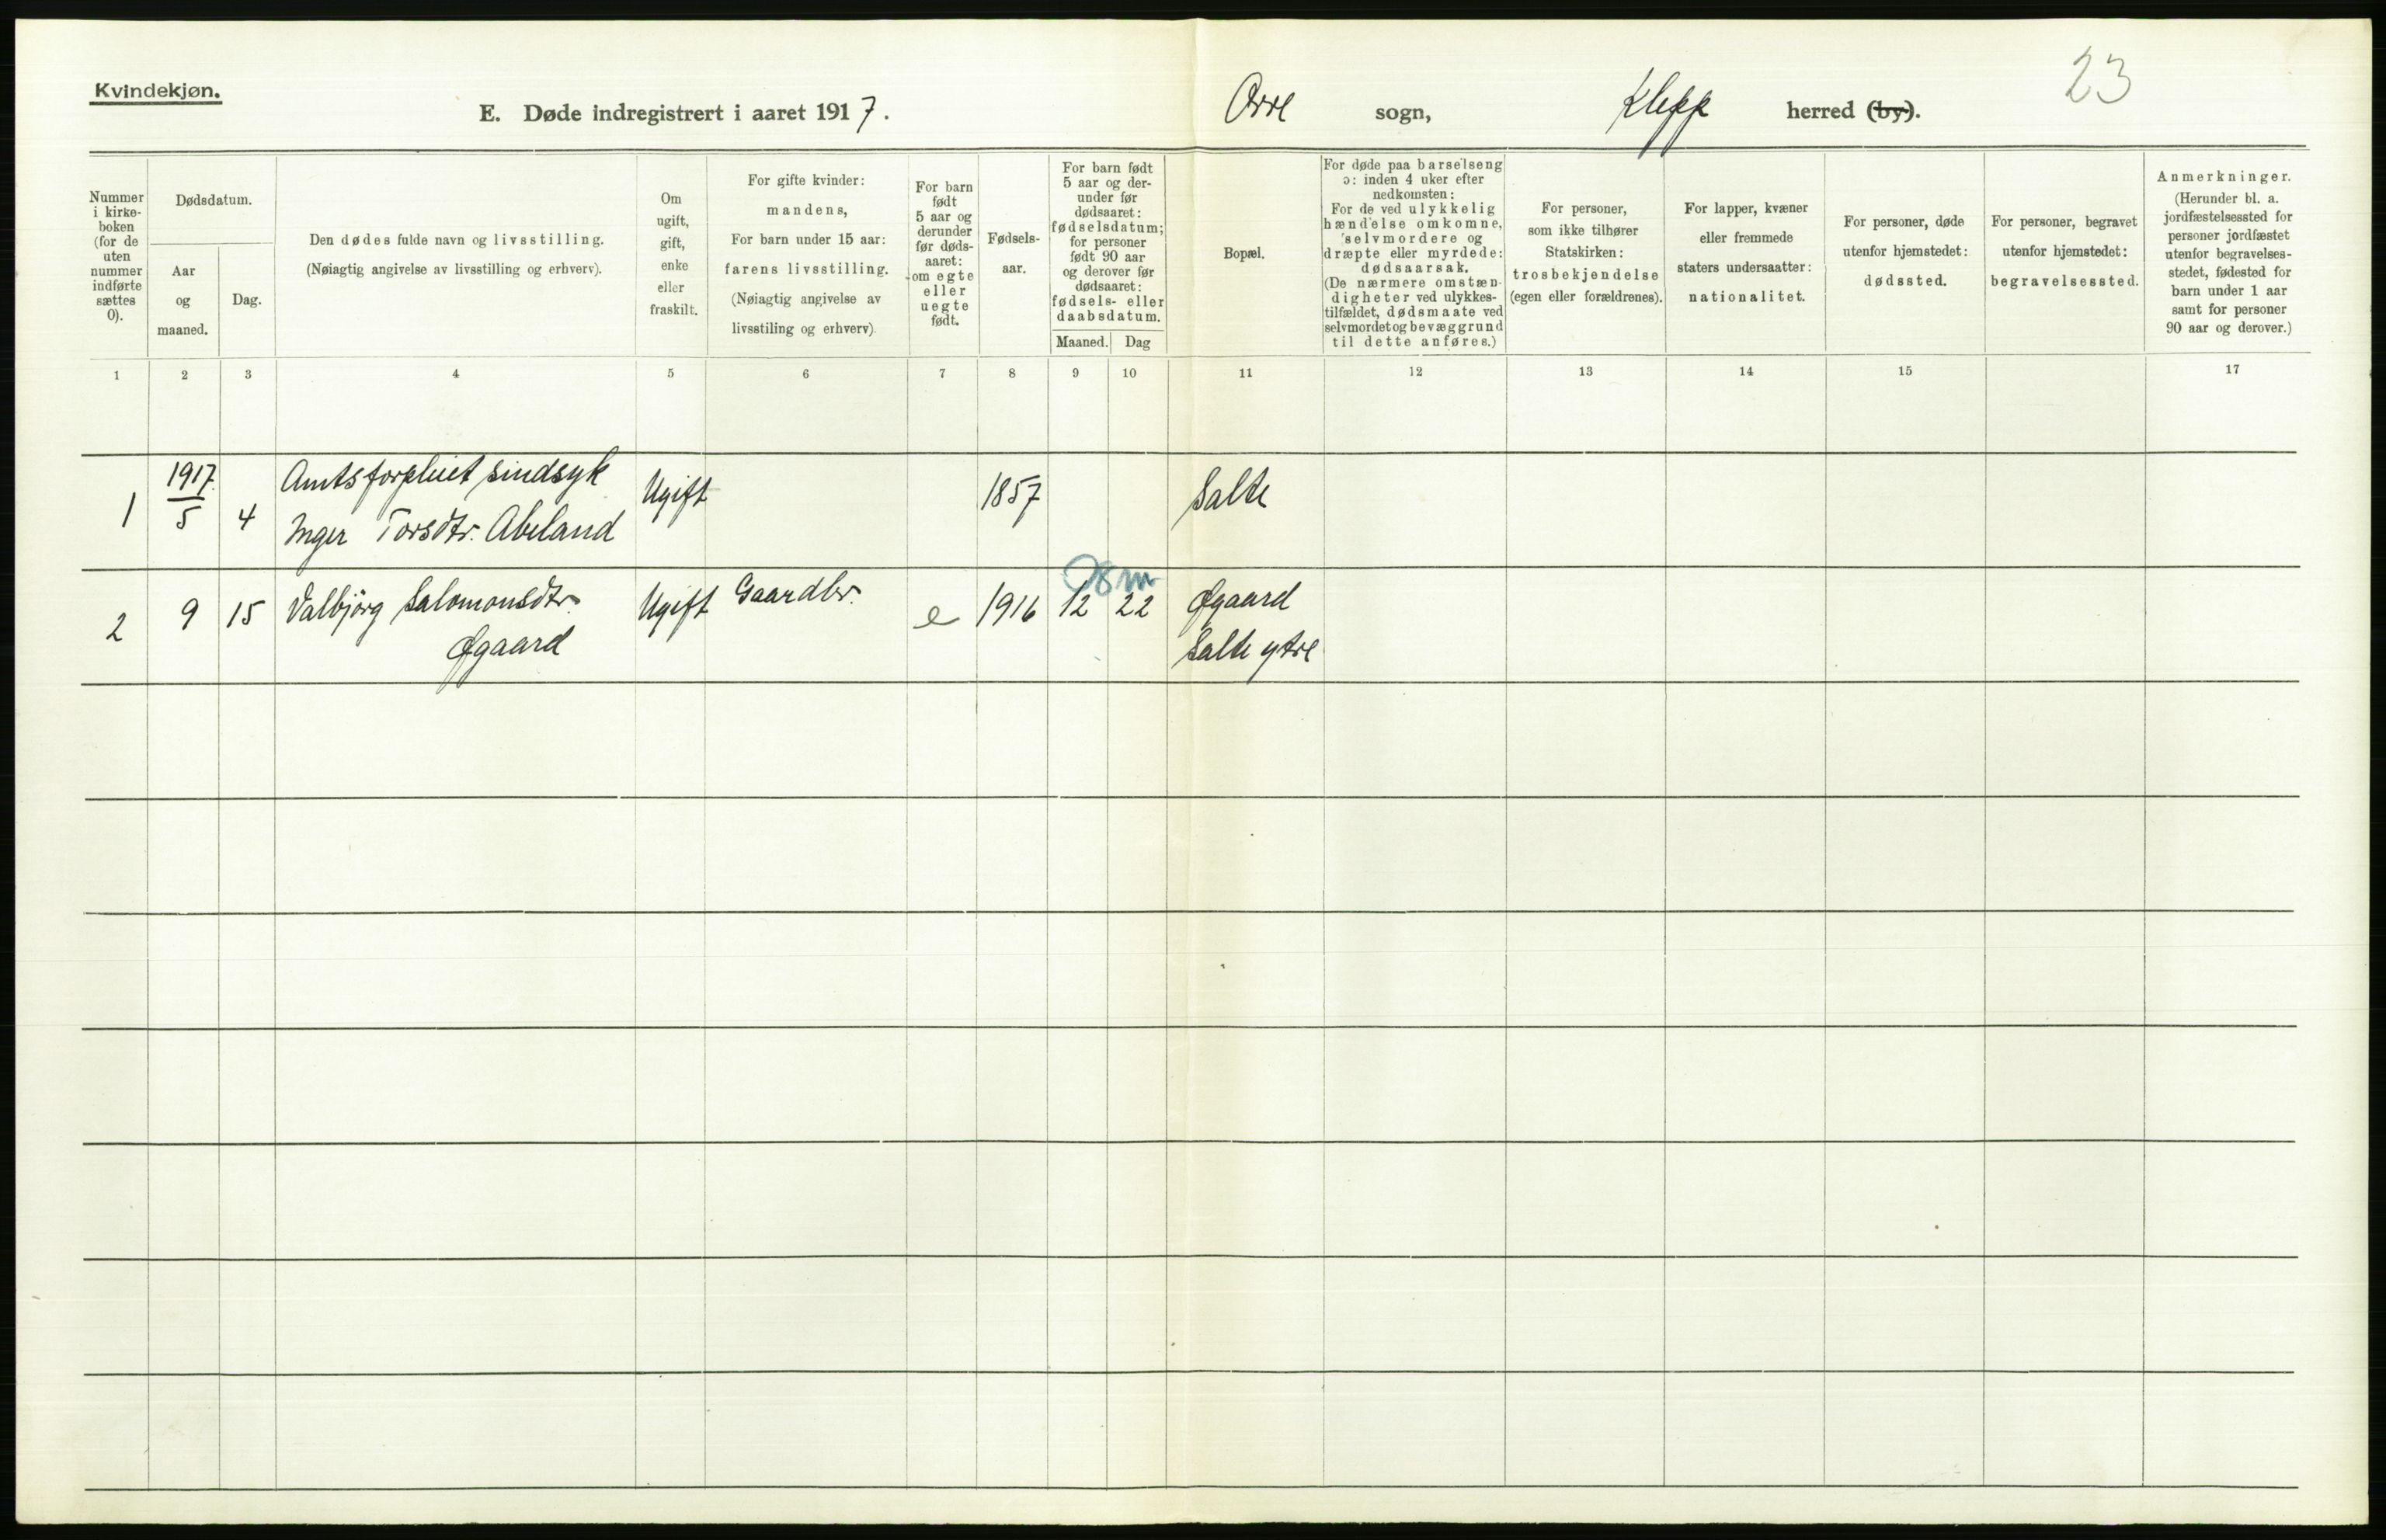 Kvindekjøn.
E. Døde indregistrert i aaret 1917. Orre sogn, Klepp herred (by).
23
Nummer
i kirke-
boken
(for de
uten
nummer
indførte
sættes
0).
Dødsdatum.
Aar
og
maaned.
Dag.
Den dødes fulde navn og livsstilling.
(Nøiagtig angivelse av livsstilling og erhverv).
Om
ugift,
gift,
enke
eller
fraskilt.
For gifte kvinder:
mandens,
For barn under 15 aar:
farens livsstilling.
(Nøiagtig angivelse av
livsstiling og erhverv)
For barn
født
5 aar og
derunder
før døds-
aaret:
om egte
eller
uegte
født.
Fødsels-
aar.
For barn født
5 aar og der-
under før
dødsaaret:
fødselsdatum;
for personer
født 90 aar
og derover før
dødsaaret:
fødsels- eller
daabsdatum.
Maaned. Dag
Bopæl.
For døde paa barselseng
ɔ: inden 4 uker efter
nedkomsten:
For de ved ulykkelig
hændelse omkomne,
selvmordere og
dræpte eller myrdede:
dødsaarsak.
(De nærmere omstæn-
digheter ved ulykkes-
tilfældet, dødsmaate ved
selvmordet og bevæggrund
til dette anføres.)
For personer,
som ikke tilhører
Statskirken:
trosbekjendelse
(egen eller forældrenes).
For lapper, kvæner
eller fremmede
staters undersaatter:
nationalitet.
For personer, døde
utenfor hjemstedet:
dødssted.
For personer, begravet
utenfor hjemstedet:
begravelsessted.
Anmerkninger.
(Herunder bl. a.
jordfæstelsessted for
personer jordfæstet
utenfor begravelses-
stedet, fødested for
barn under 1 aar
samt for personer
90 aar og derover.)
1 2 3 4 5 6 7 8 9 10 11 12 13 14 15 17
1917 Amtsforpleiet sindsyk
1 5 4 Inger Torsdtr. Abeland Ugift 1857 Salte
8 m
2 9 15 Valbjörg Salomonsdtr. Ugift Gaardbr. e 1916 12 22 Øgaard
Øgaard Salte ytre